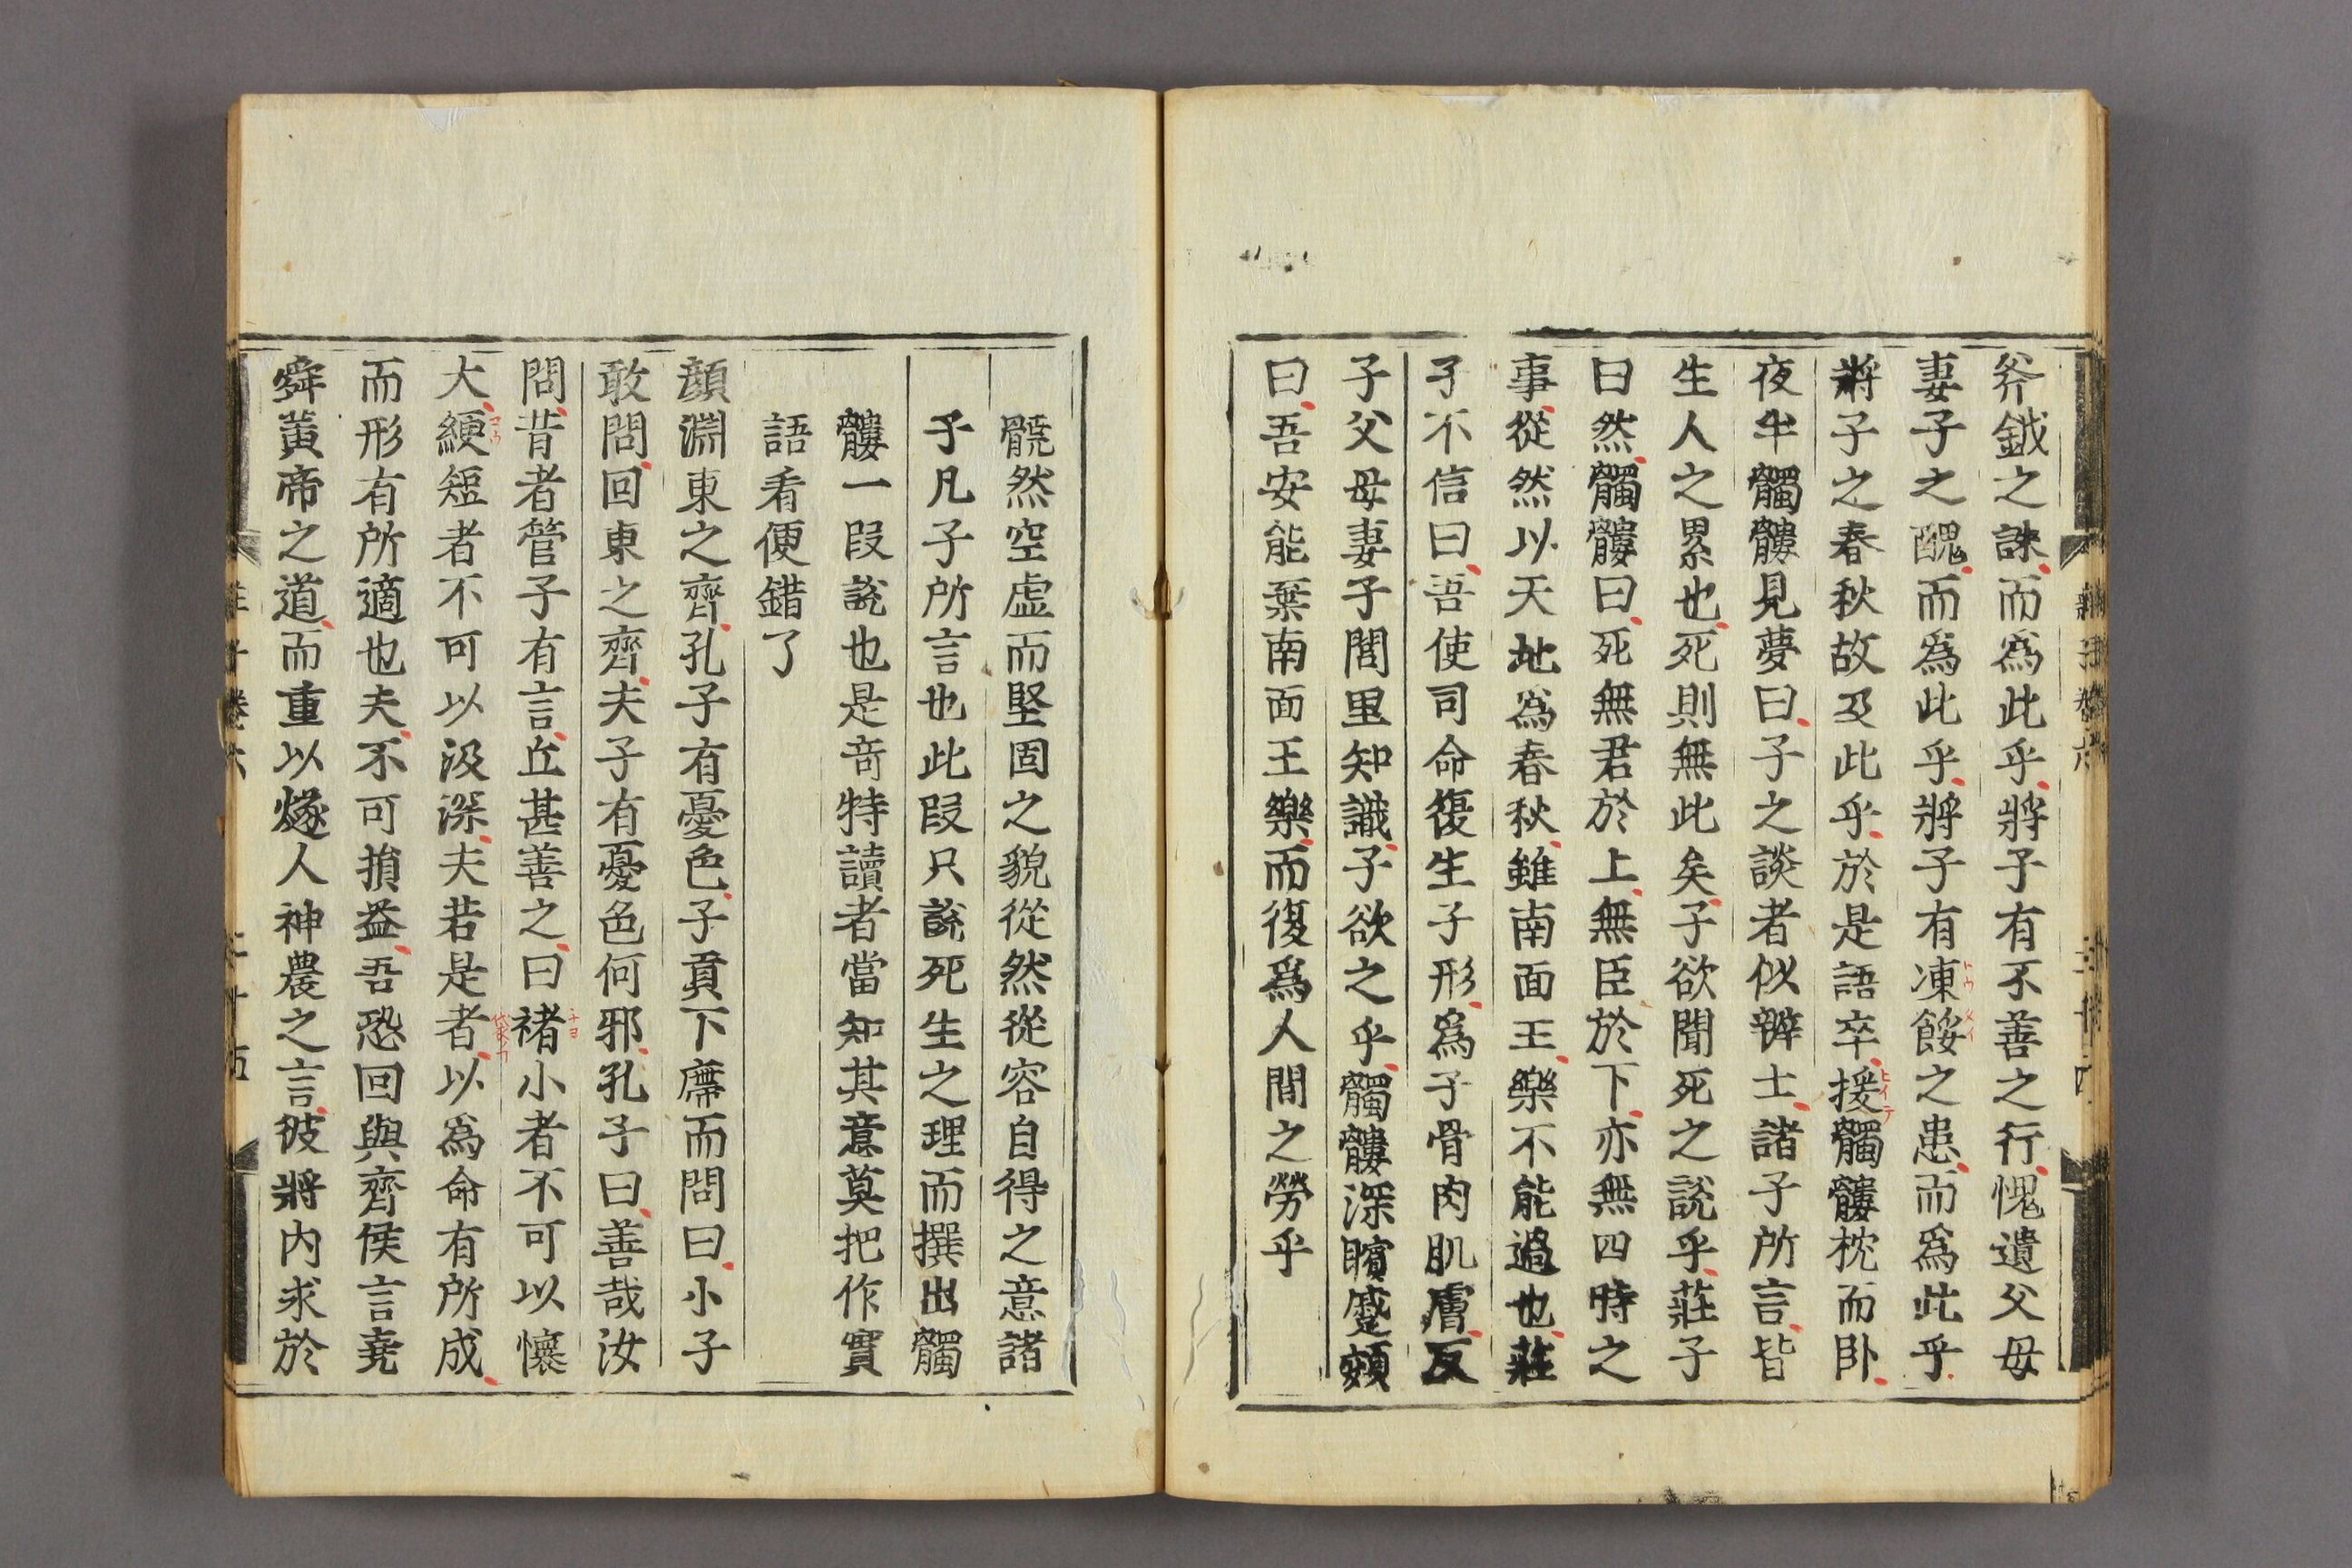 斧鉞之誅而爲此乎將子有不善之行愧遺父母
妻子之醜而爲此乎將子有凍餒之患而爲此乎
將子之春秋故及此乎於是語卒援髑髏枕而卧
夜半髑髏見夢曰子之談者似辯士諸子所言皆
生人之累也死則無此矣子欲聞死之說乎莊子
曰然髑髏曰死無君於上無臣於下亦無四時之
事從然以天地爲春秋雖南面王樂不能過也莊
子不信曰吾使司命復生子形爲子骨肉肌膚反
子父母妻子閭里知識子欲之乎髑髏深矉蹙頞
曰吾安能棄南面王樂而復爲人間之勞乎
髐然空虛而堅固之貌從然從容自得之意諸
子凡子所言也此段只說死生之理而撰出髑
髏一段說也是竒特讀者當知其意莫把作實
語看便錯了
顔淵東之齊孔子有憂色子貢下席而問曰小子
敢問回東之齊夫子有憂色何邪孔子曰善哉汝
問昔者管子有言丘甚善之曰褚小者不可以懷
大綆短者不可以汲深夫若是者以爲命有所成
而形有所適也夫不可損益吾恐回與齊侯言堯
舜黃帝之道而重以燧人神農之言彼將内求於
莊子卷六